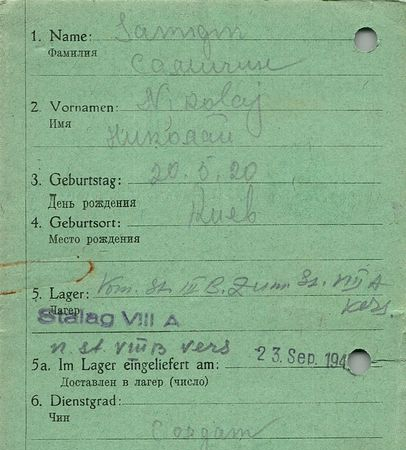 1. Name: Samgin
Фамилия
Самгин
2. Vornamen: Nikolaj
Имя
Николай
3. Geburtstag: 20.5.20
День рождения
4. Geburtsort: Киев
Место рождения
5. Lager: Vom. St. IV B. zum St. VIII A
Лагерь vers
Stalag VIII A
n. St. VIII B vers
5a. Im Lager eingeliefert am: 23. Sep. 194
Доставлен в лагер (число)
6. Dienstgrad:
Чин
Солдат